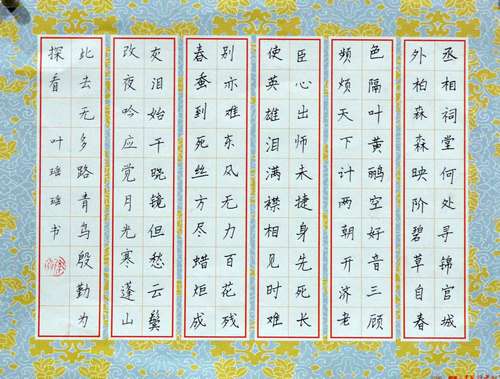 丞相祠堂何处寻锦宫城
外柏森森映阶碧草自春
色隔叶黄鹂空好音三顾
频烦天下计两朝开济老
臣心出师未捷身先死长
使英雄泪满襟相见时难
别亦难东风无力百花残
春蚕到死丝方尽蜡炬成
灰泪始干晓镜但愁云鬓
改夜吟应觉月光寒蓬山
此去无多路青鸟殷勤为
探看 叶瑶瑶书